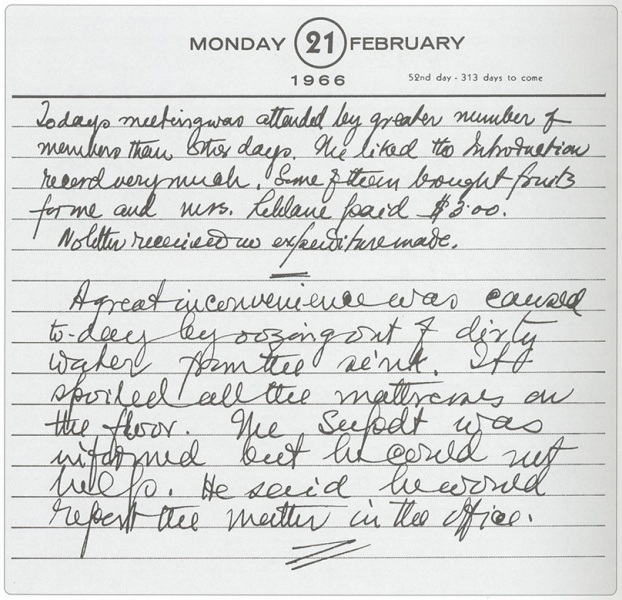 MONDAY 21 FEBRUARY
1966
52nd day - 313 days to come
Todays meeting was attended by greater number of
members than other days. The liked the Introduction
record very much. Some of them brought fruits
for me and mrs. Leblanc paid $3.00.
No letter received no expenditure made.
A great inconvenience was caused
to-day by oozing out of dirty
water from the sink. It
spoiled all the mattresses on
the floor. The Supdt was
informed but he could not
help. He said he would
report the matter in the office.